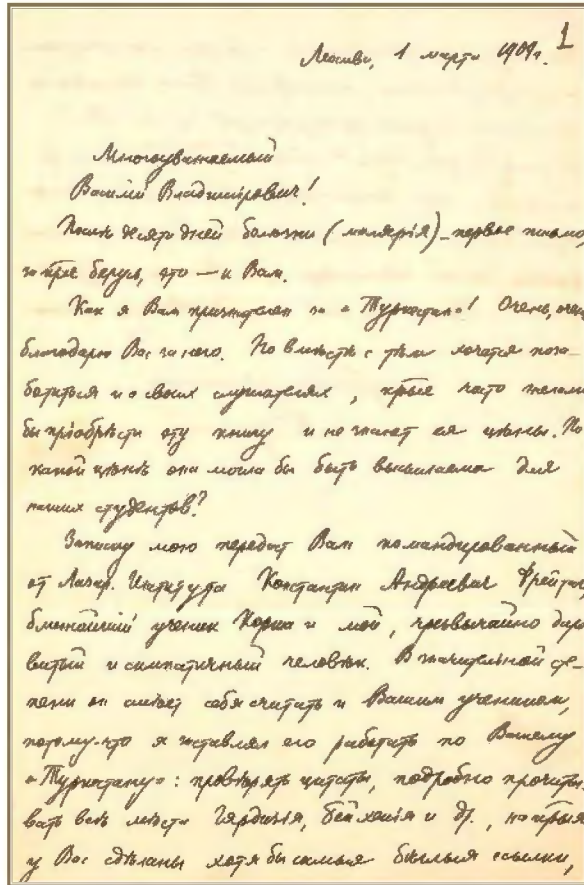 1
Москва, 1 марта 1909г.
Многоуважаемый
Василій Владиміровичъ!
Послѣ десяти дней болѣзни (малярія) – первое письмо,
за крое берусь, это – к Вам.
Как я Вам признателен за «Туркестан»! Очень, очень
благодарю Вас за него. Но вмѣстѣ с тѣм хочется поза-
ботиться и о своих слушателях, крые часто желали
бы пріобрѣсти эту книгу и не знают ея цѣны. По
какой цѣнѣ она могла бы быть высылаема для
наших студентов?
Записку мою передаст Вам командированный
от Лазар. Института Константин Андреевич Фрейтаг,
ближайшій ученик Корша и мой, чрезвычайно даро-
витый и симпатичный человѣк. В значительной сте-
пени он смѣет себя считать и Вашим учеником,
потому-что я заставлял его работать по Вашему
«Туркестану»: провѣрять цитаты, подробно прочиты-
вать всѣ мѣста Гардизія, Бейхакія и др., на крыя
у Вас сдѣланы хотя бы самыя бѣглыя ссылки,